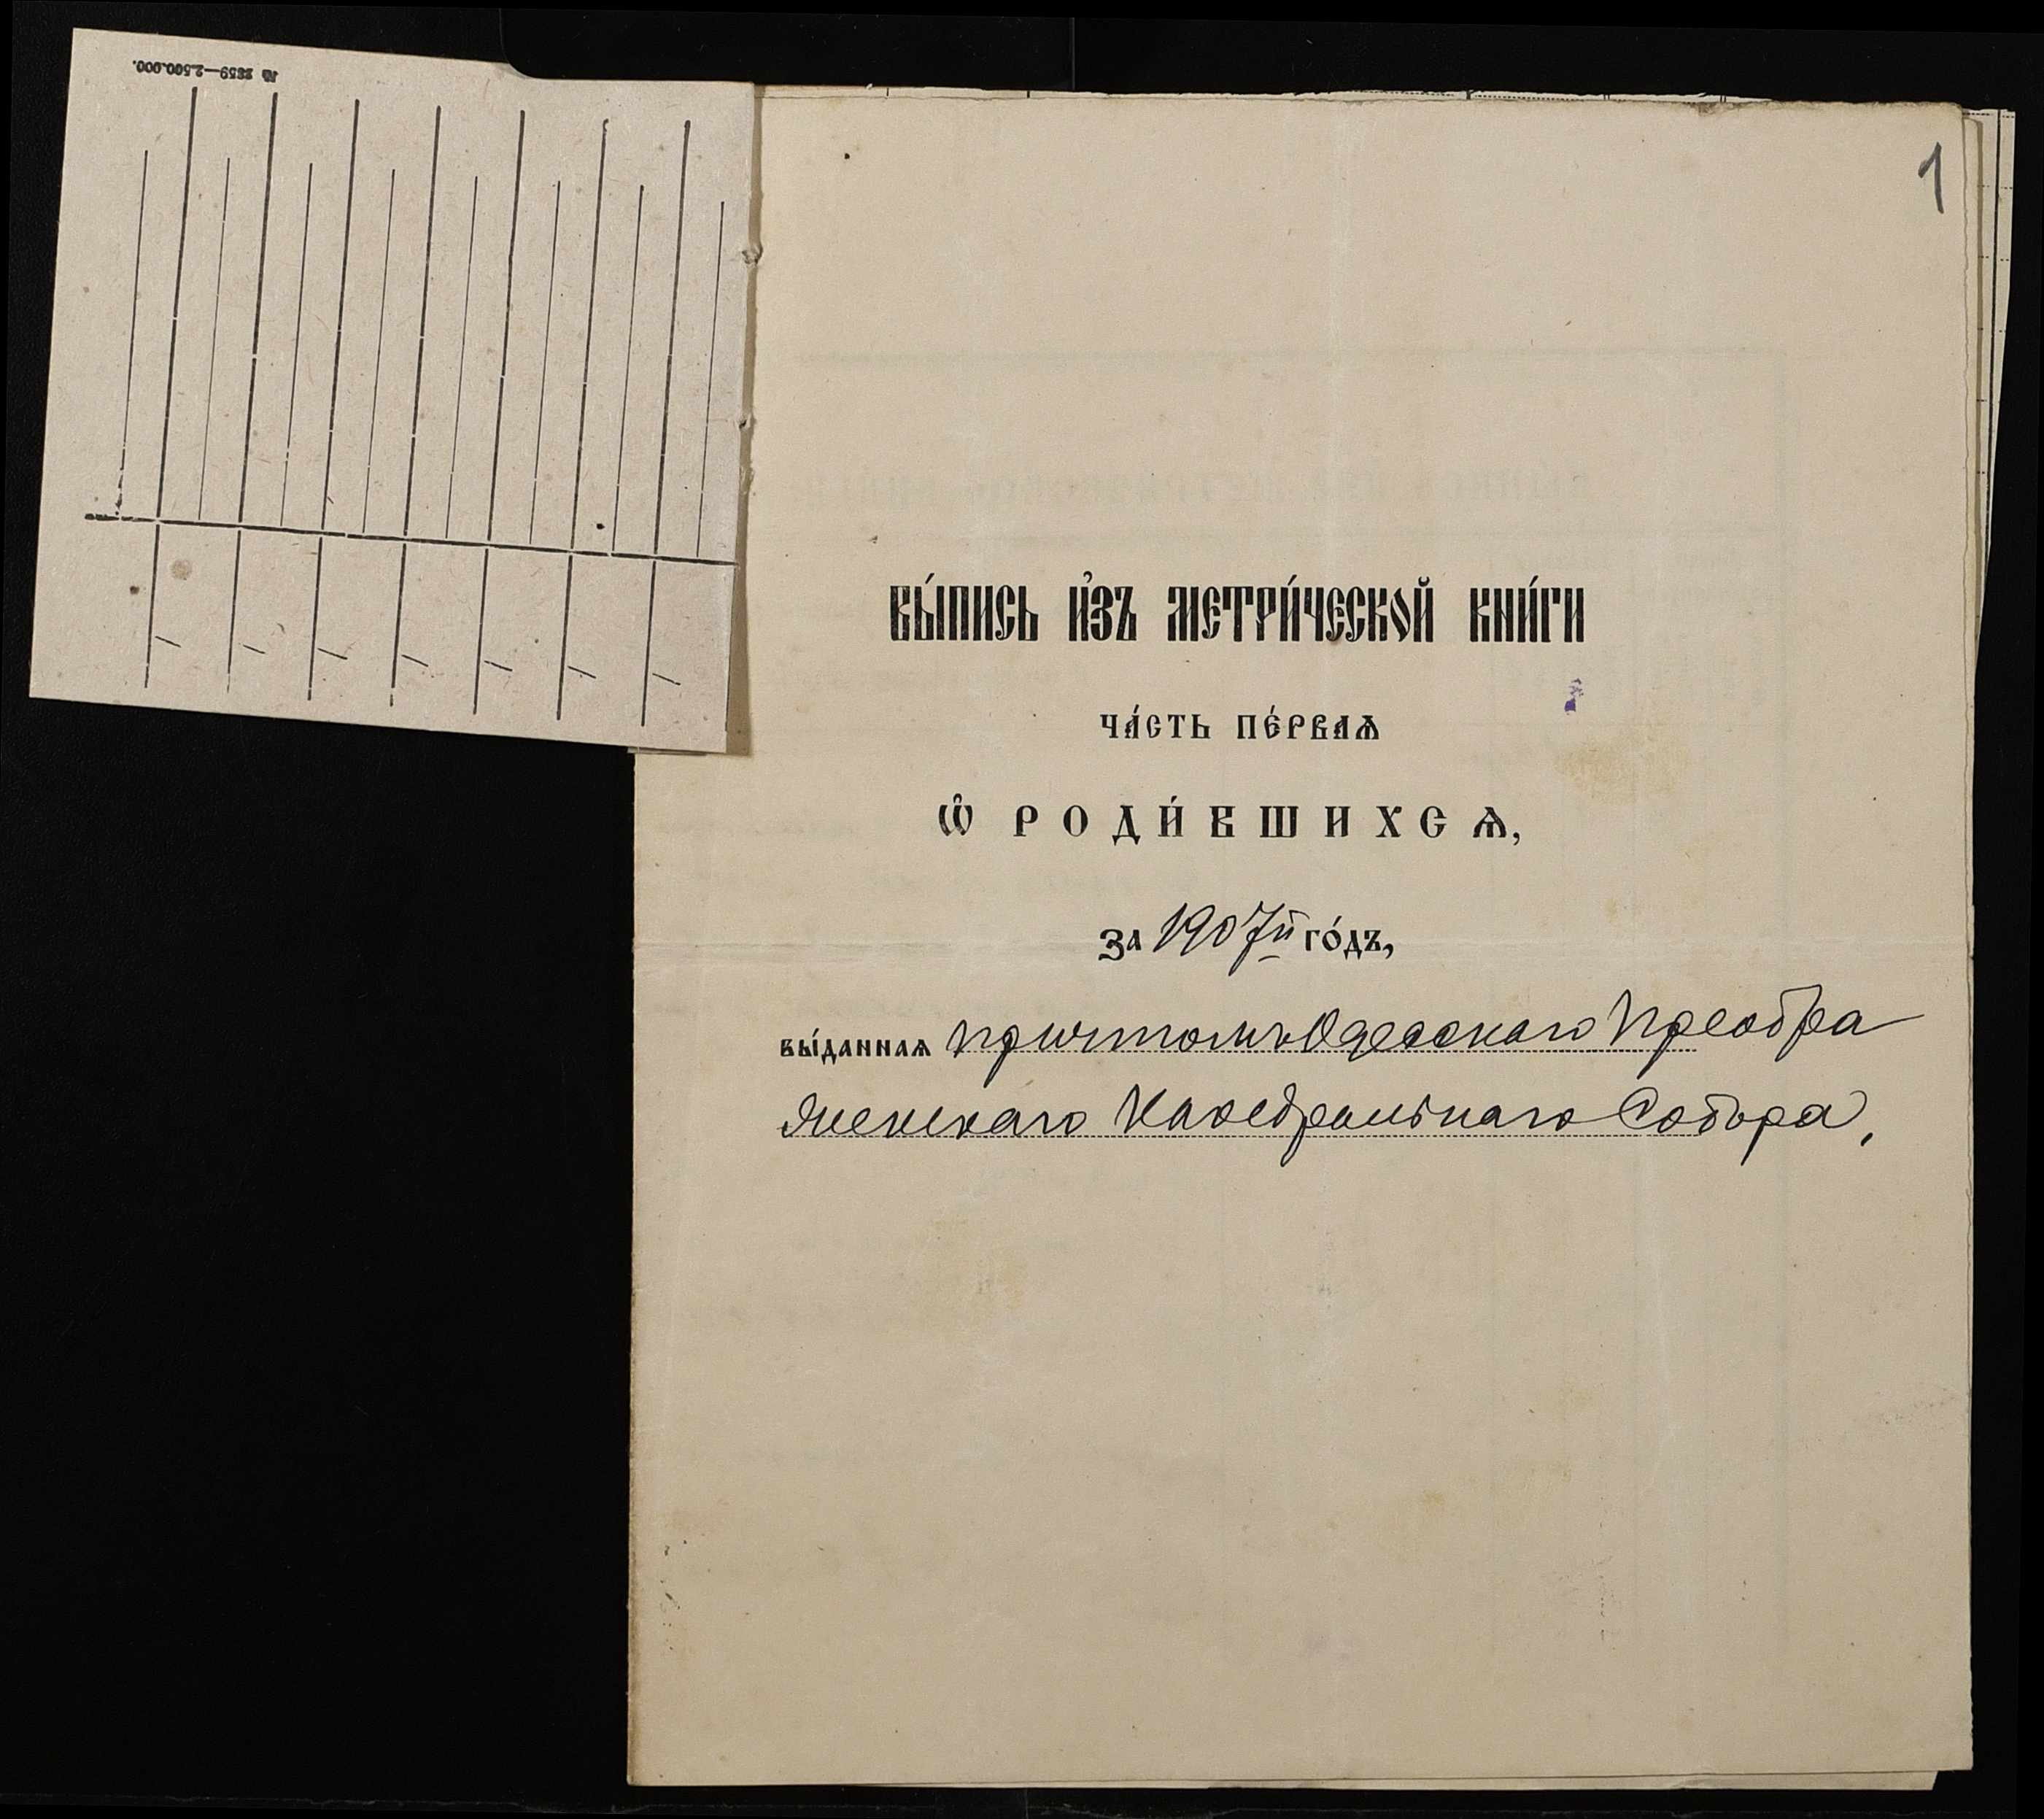 № 2859—2.500.000.
1
ВЫ́ПИСЬ И҆ЗЪ МЕТРИ́ЧЕСКОЙ КНИ́ГИ
ЧА́СТЬ ПЕ́РВАѦ
Ѽ РОДИ́ВШИХСѦ,
за 1907й го́дъ,
вы́даннаѧ причтомъ Одесскаго Преобра
женскаго Каѳедральнаго Собора,